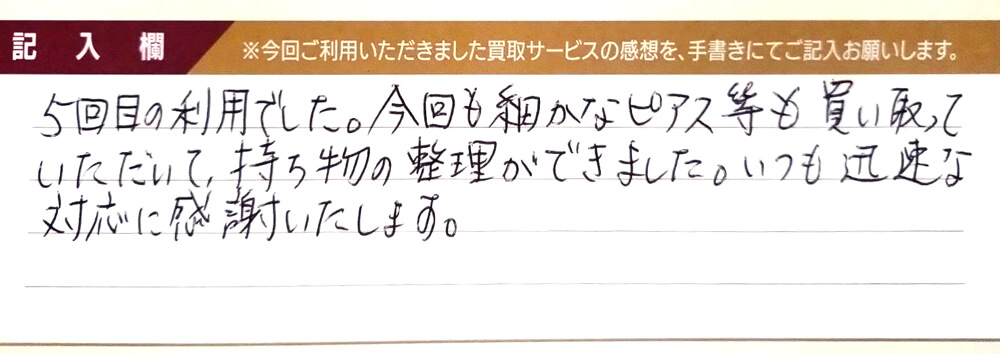 記入欄 ※今回ご利用いただきました買取サービスの感想を、手書きにてご記入お願いします。
5回目の利用でした。今回も細かなピアス等も買い取って
いただいて、持ち物の整理ができました。いつも迅速な
対応に感謝いたします。